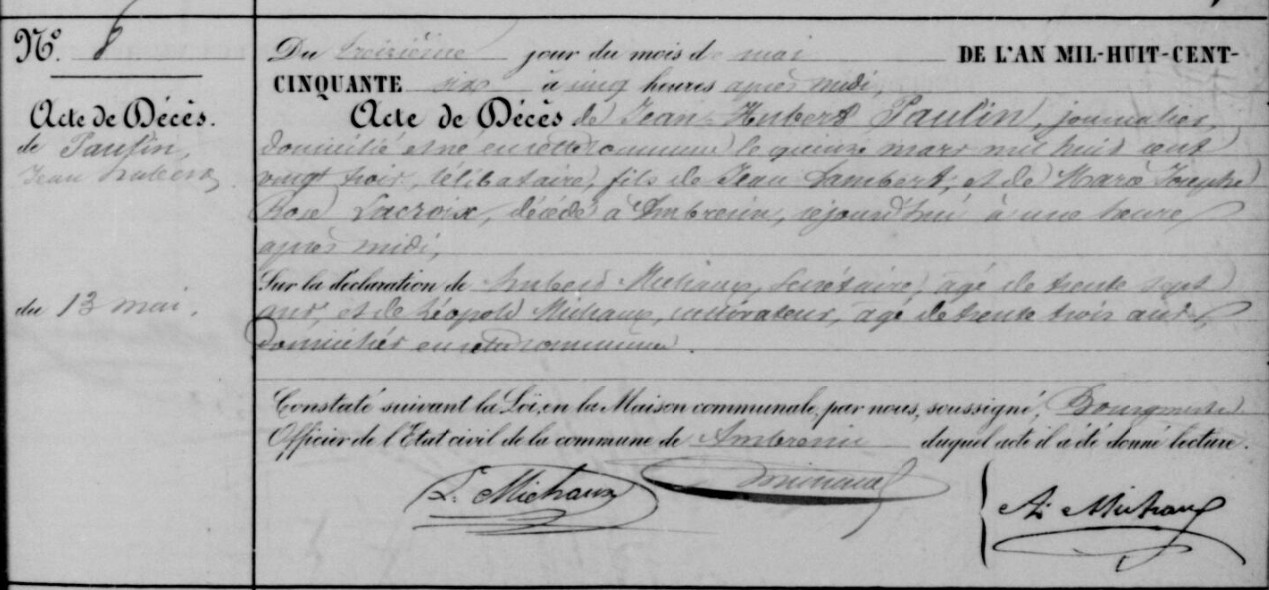 Nº. 8
Acte de Décès.
de Paulin,
Jean hubert
du 13 mai.
Du treizième jour du mois de mai DE L'AN MIL-HUIT-CENT-
CINQUANTE six à cinq heures après midi,
Acte de Décès de Jean-Hubert Paulin, journalier,
domicilié et né en cette commune le quinze mars mil huit cent
vingt trois, célibataire, fils de Jean Lambert, et de Marie Josephe
Rose Lacroix, décédé à Ambresin, cejourd'hui à une heure
après midi,
Sur la déclaration de Hubert Michaux, Secrétaire, agé de trente sept
ans, et de Léopold Michaux, cultivateur, agé de trente trois ans
domiciliés en cette commune.
Constaté suivant la Loi, en la Maison communale, par nous, soussigné, Bourgmestre
Officier de l'Etat civil de la commune de Ambresin duquel acte il a été donné lecture.
L. Michaux
Michaux